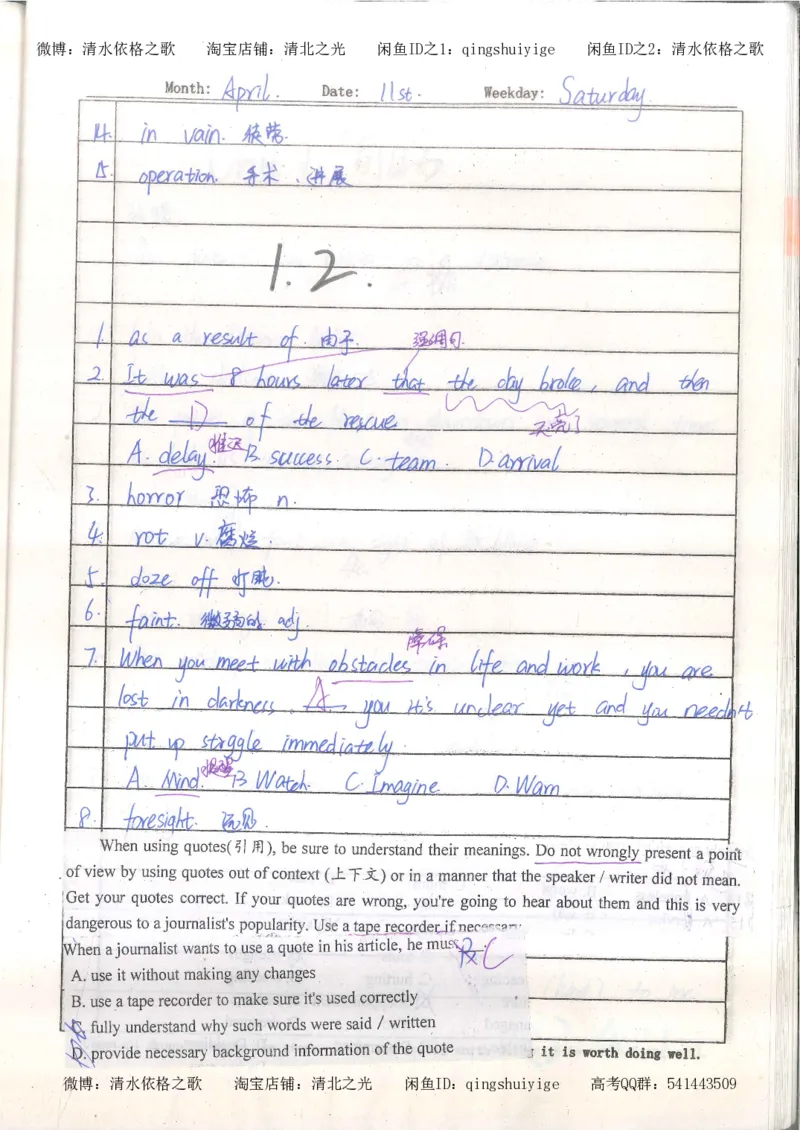 微博：清水依格之歌 淘宝店铺：清北之光 闲鱼ID之1：qingshuiyige 闲鱼ID之2：清水依格之歌
Month: April. Date: 11st. Weekday: Saturday.
14. in vain. 徒劳.
15. operation. 手术、进展
1.2.
1. as a result of. 由于. 强调句.
2. It was 8 hours later that the day broke, and then
the D of the rescue 天亮了
A. delay. 推迟 B. success. C. team. D. arrival
3. horror 恐怖 n.
4. rot v. 腐烂.
5. doze off 打盹.
6. faint. 微弱的 adj.
障碍
7. When you meet with obstacles in life and work, you are
lost in darkness. A you it's unclear yet and you needn't
put up struggle immediately.
A. Mind. 提醒 B Watch. C. Imagine D. Warn
8. foresight. 远见.
When using quotes(引用), be sure to understand their meanings. Do not wrongly present a point
of view by using quotes out of context (上下文) or in a manner that the speaker / writer did not mean.
Get your quotes correct. If your quotes are wrong, you're going to hear about them and this is very
dangerous to a journalist's popularity. Use a tape recorder if necessary
When a journalist wants to use a quote in his article, he mus C
A. use it without making any changes
B. use a tape recorder to make sure it's used correctly
C. fully understand why such words were said / written
D. provide necessary background information of the quote
it is worth doing well.
微博：清水依格之歌 淘宝店铺：清北之光 闲鱼ID：qingshuiyige 高考QQ群：541443509